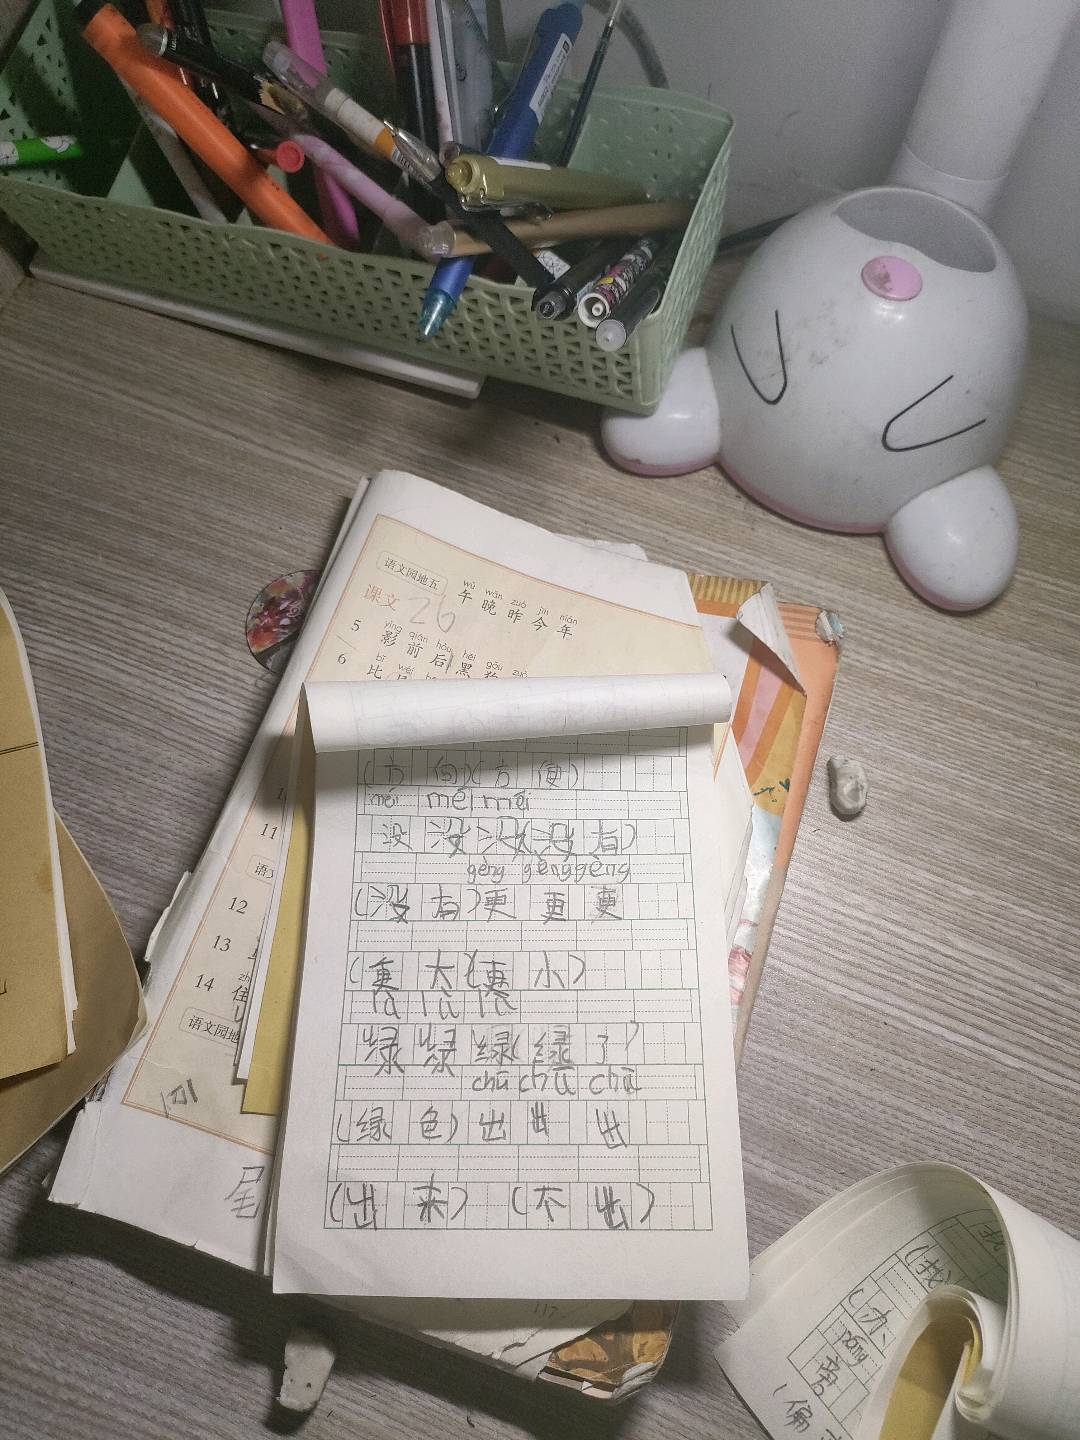 语文园地五
wǔ wǎn zuó jīn nián
午 晚 昨 今 年
课文 26
yǐng qián hòu hēi gǒu
5 影 前 后 黑 狗
bǐ wěi
6 比 尾
(方 向)(方 便)
méi méi méi
没 没 没(没 有)
gèng gèng gèng
(没 有)更 更 更
(更 大)(更 小)
lǜ lǜ lǜ
绿 绿 绿(绿 了)
chū chū chū
(绿 色) 出 出 出
(出 来) (不 出)
11
语
12
13
zh
14 住
语文园地
尾
117
(找
(办
páng
旁
(偏